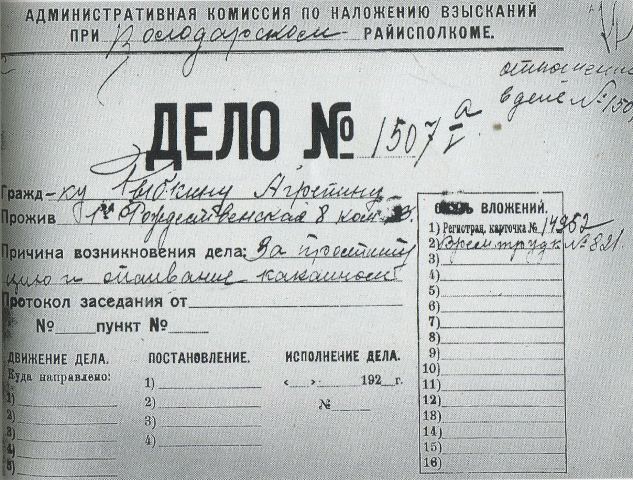 АДМИНИСТРАТИВНАЯ КОМИССИЯ ПО НАЛОЖЕНИЮ ВЗЫСКАНИЙ
ПРИ Володарском РАЙИСПОЛКОМЕ.
отношение
в деле № 150
ДЕЛО № 1507 а
Гражд-ку Агрепину
Прожив 1я Рождественская 8 ком
Причина возникновения дела: За проститу
цию и спаивание кокаином
Протокол заседания от
№ пункт №
ВЛОЖЕНИЙ.
1) Регистрац. карточка № 14952
2) Врем. трудк № 821.
3)
4)
5)
6)
7)
8)
9)
10)
11)
12)
13)
14)
15)
16)
ДВИЖЕНИЕ ДЕЛА.
Куда направлено:
1)
2)
3)
4)
5)
ПОСТАНОВЛЕНИЕ.
1)
2)
3)
4)
ИСПОЛНЕНИЕ ДЕЛА.
« » 192 г.
№